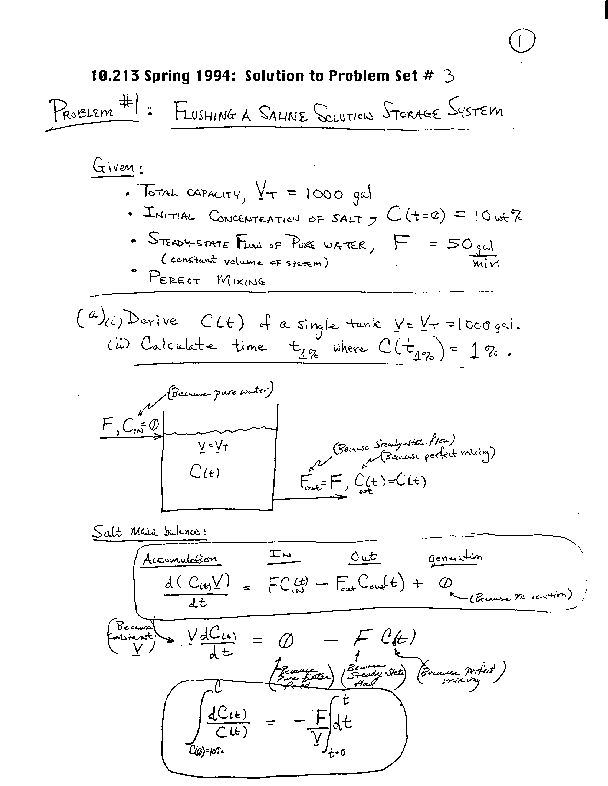 1
10.213 Spring 1994: Solution to Problem Set # 3
PROBLEM #1: FLUSHING A SALINE SOLUTION STORAGE SYSTEM
Given:
• TOTAL CAPACITY, V_T = 1000 gal
• INITIAL CONCENTRATION OF SALT, C(t=0) = 10 wt%
• STEADY-STATE FLOW OF PURE WATER, F = 50 gal/min.
(constant volume of system)
• PERECT MIXING
(a)(i) Derive C(t) of a single tank V = V_T = 1000 gal.
(ii) Calculate time t_1% where C(t_1%) = 1%.
(Because pure water)
F, C_IN = 0
V = V_T
C(t)
(Because steady-state flow)
(Because perfect mixing)
F_out = F, C_out(t) = C(t)
Salt mass balance:
Accumulation IN Out generation
d(C(t)V)/dt = F C_IN(t) - F_out C_out(t) + 0
(Because no reaction)
(Because constant V) V dC(t)/dt = 0 - F C(t)
(Because pure water feed) (Because Steady-state flow) (Because perfect mixing)
∫_{C(0)=10%}^{C} dC(t)/C(t) = - F/V ∫_{t=0}^{t} dt